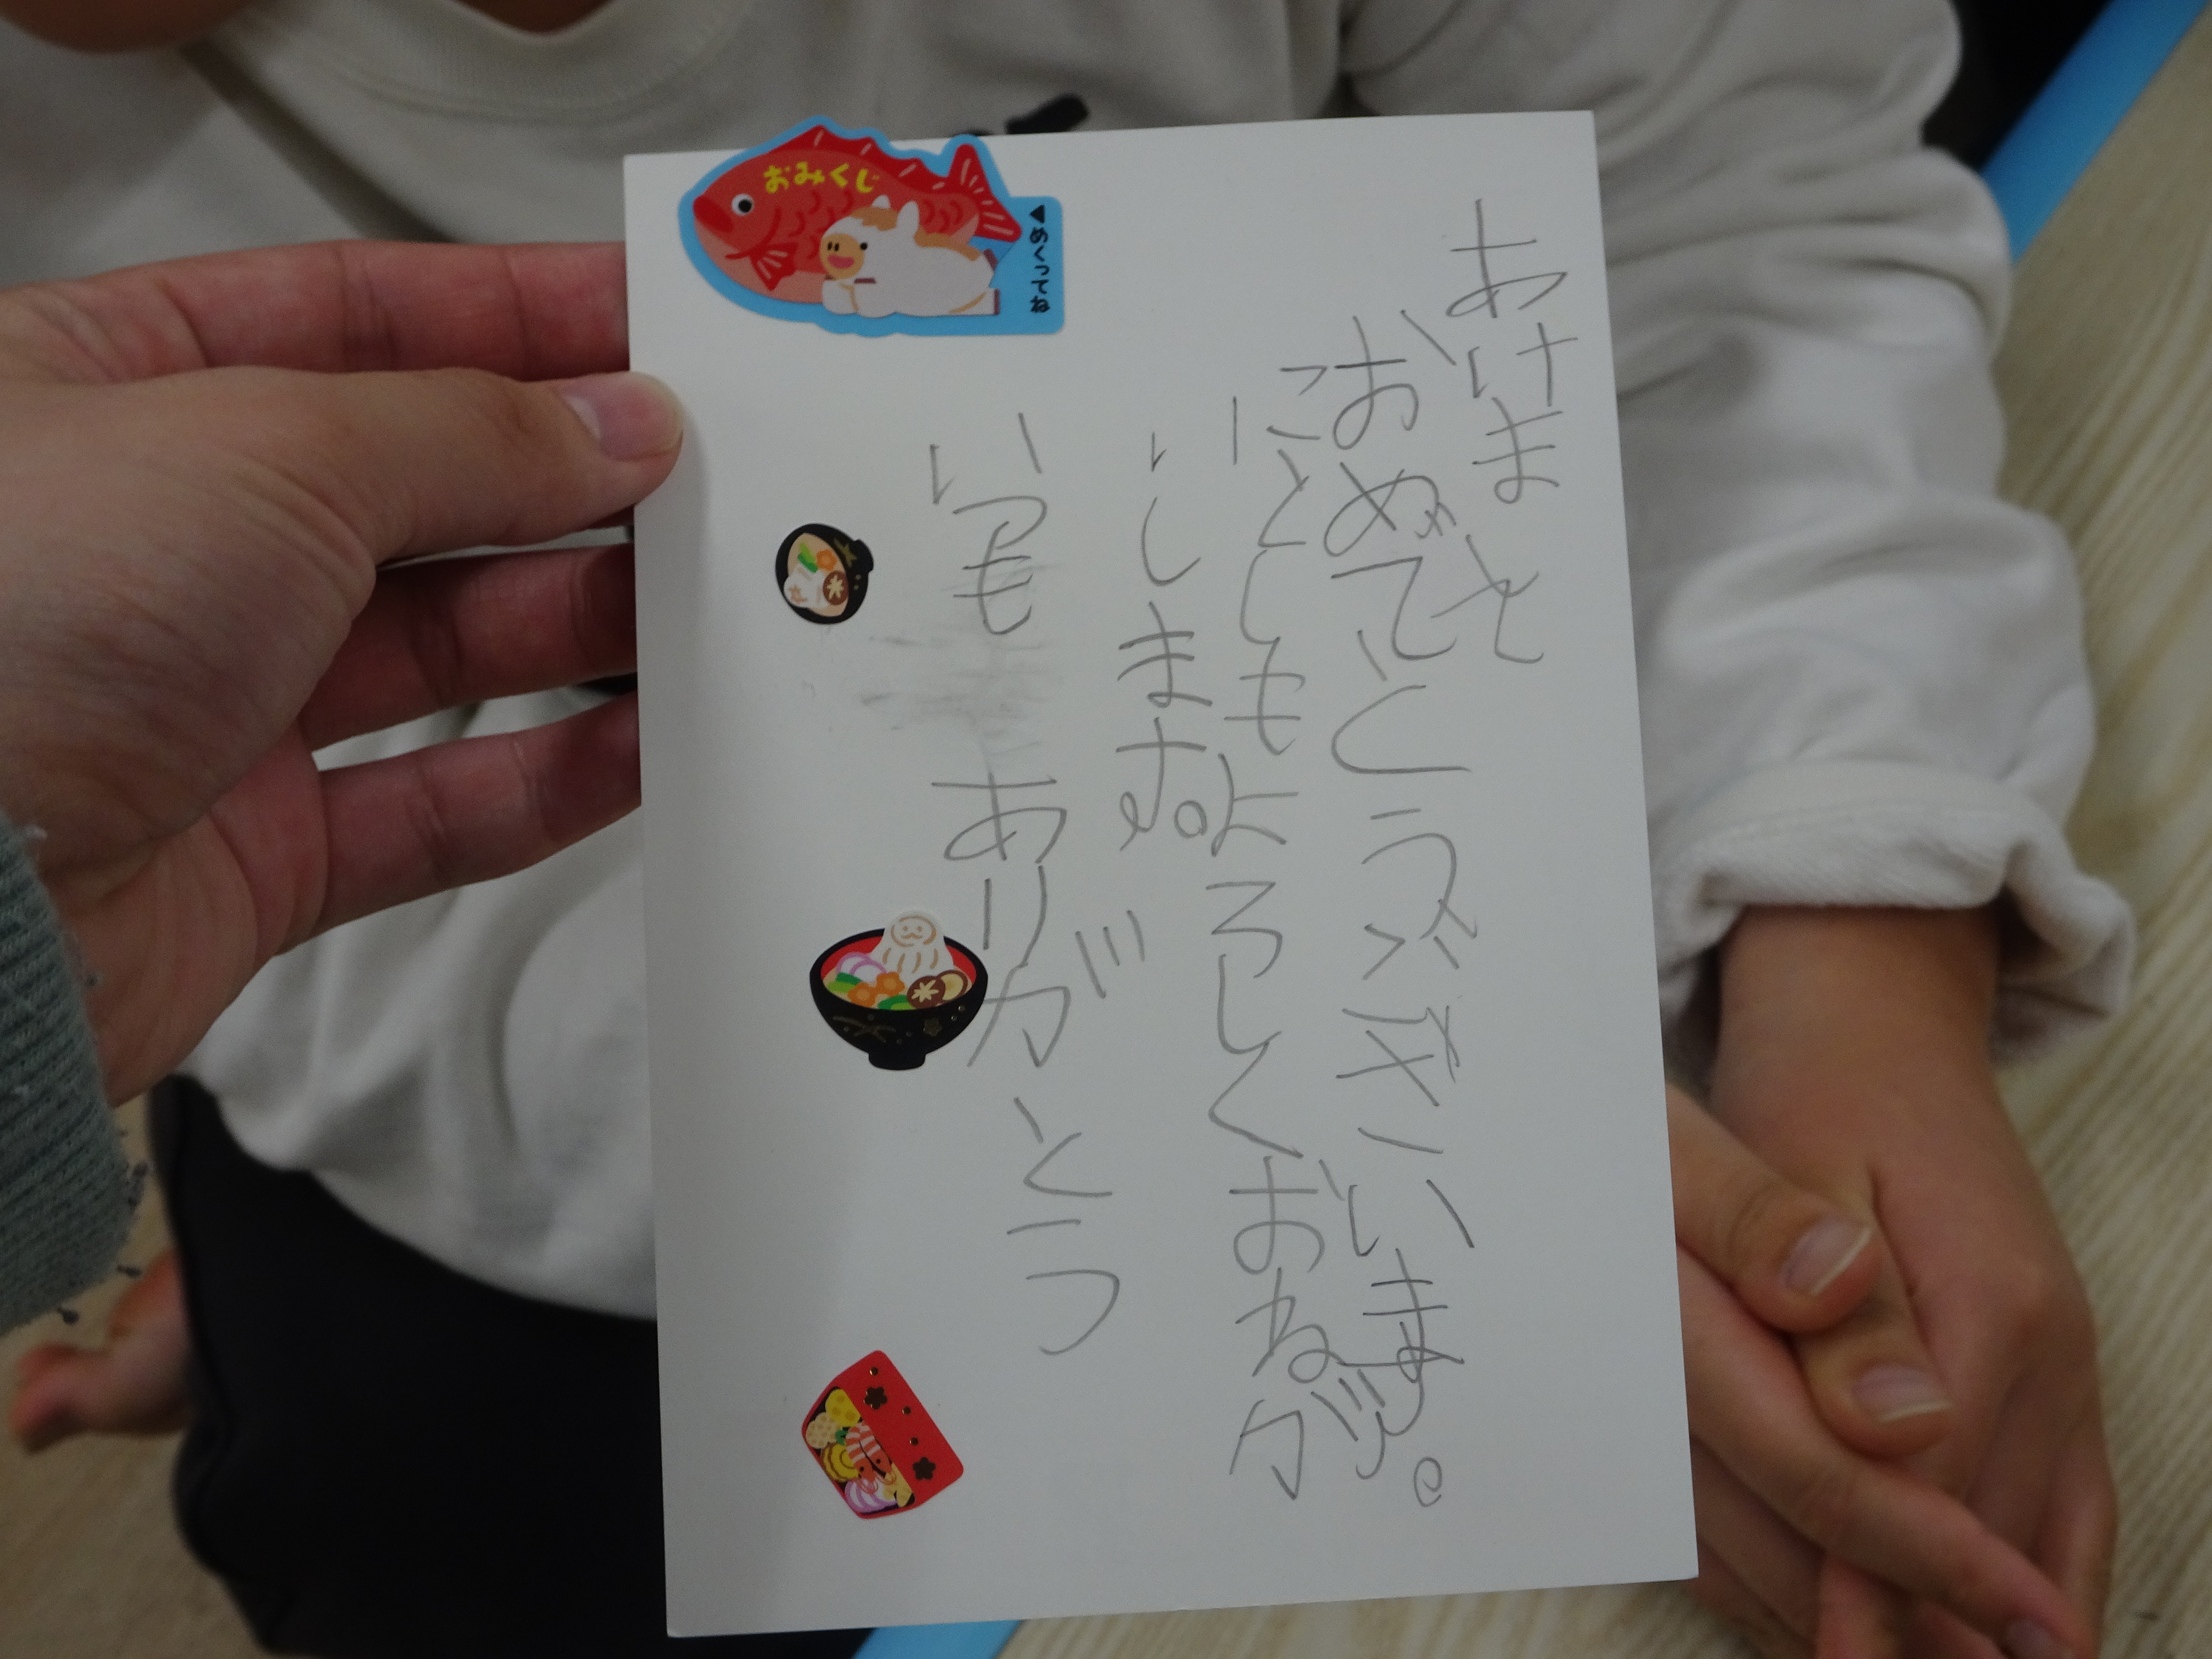 あけまと
おめでとうございます。
ことしもよろしくおねが
いします。
いつもありがとう
おみくじ
◀めくってね